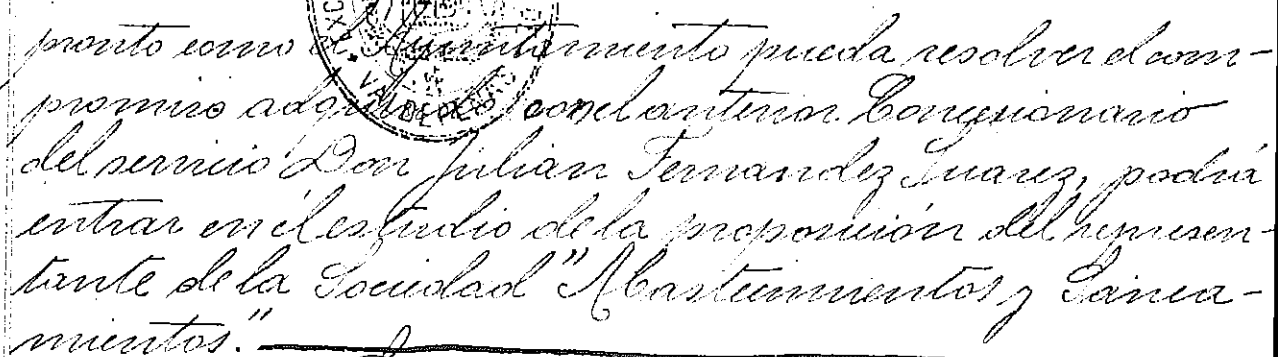 pronto como el Ayuntamiento pueda resolver el com-
promiso adquirido con el anterior Concesionario
del servicio Don Julian Fernandez Suarez, podrá
entrar en el estudio de la proposición del represen-
tante de la Sociedad "Abastecimientos y Sanea-
mientos."
VALDEPEÑAS